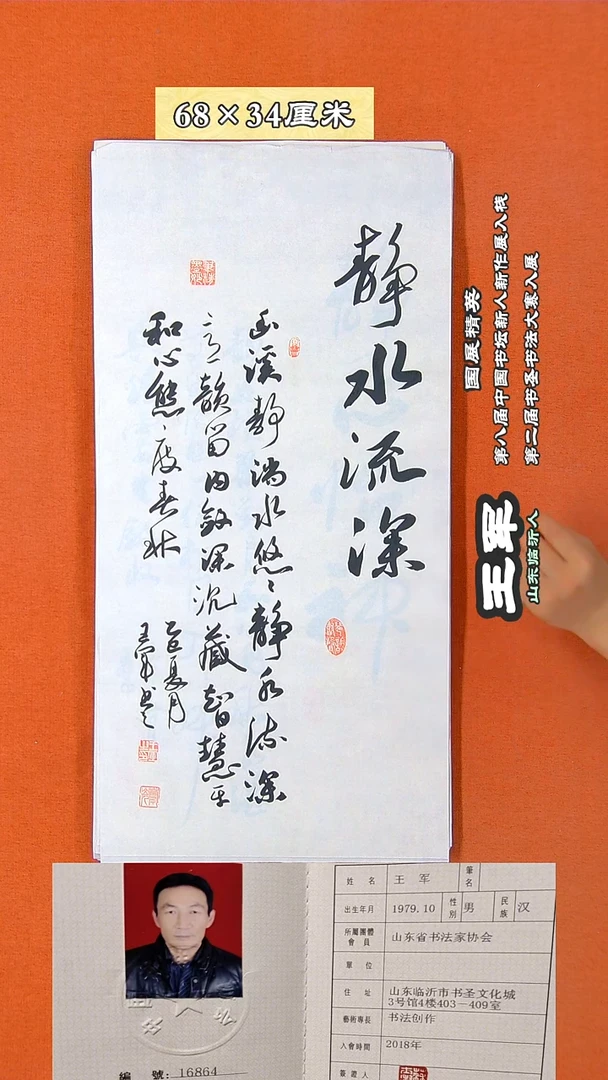 68×34厘米
静水流深
幽溪静淌水悠悠静水流深
意韻留内敛深沉藏智慧平
和心態度春秋
乙巳夏月
王軍书
国展精英
第八届中国书坛新人新作展入栈
第二届书圣书法大赛入展
王军
山东临沂人
姓名 王军 筆名
出生年月 1979.10 性别 男 民族 汉
所屬團體會員 山东省书法家协会
單位
住址 山东临沂市书圣文化城
3号馆4楼403—409室
藝術專長 书法创作
入會時間 2018年
簽證人
編號:16864